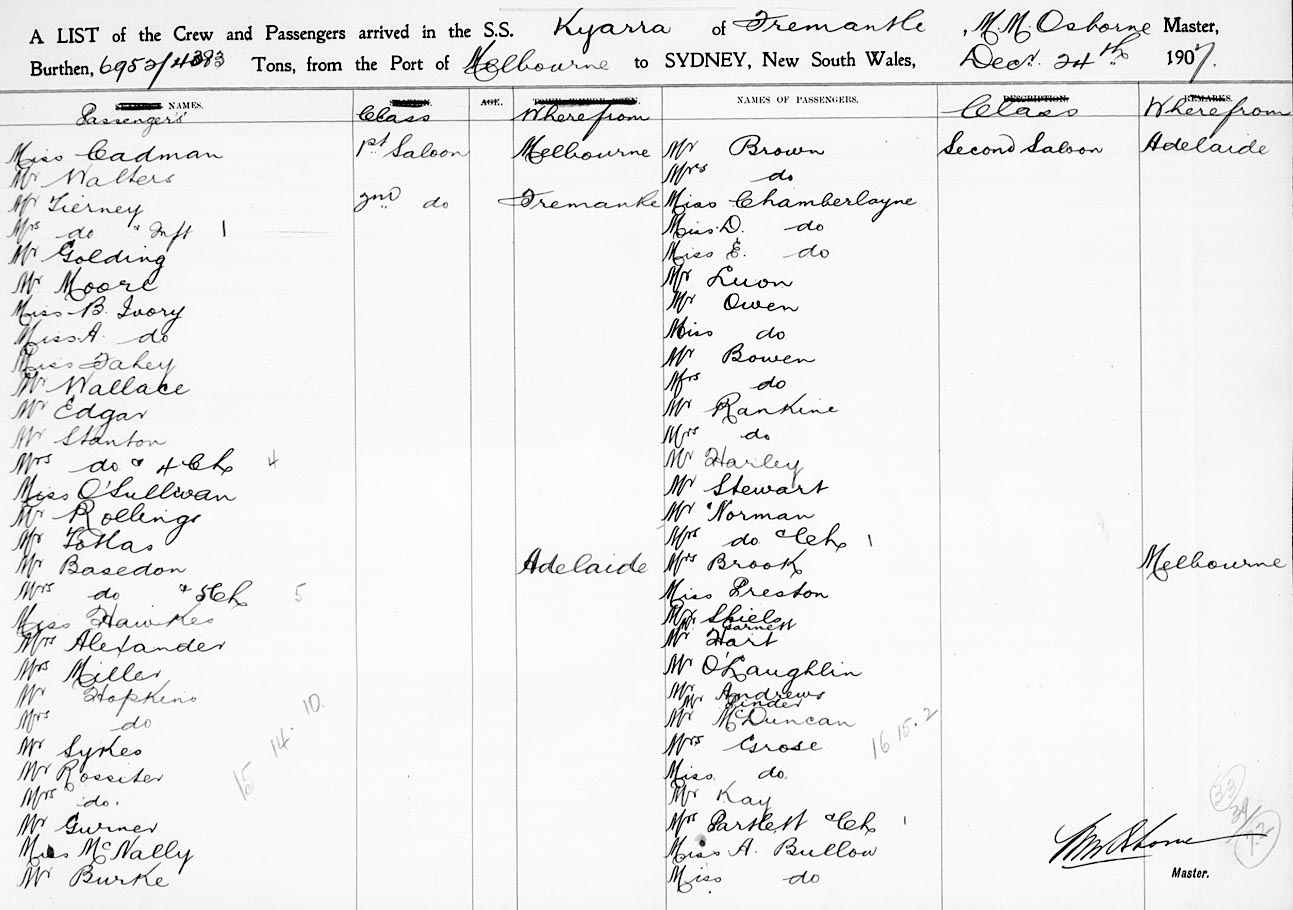 A LIST of the Crew and Passengers arrived in the S.S. Kyarra of Fremantle, M.M. Osborne Master,
Burthen, 6952/4383 Tons, from the Port of Melbourne to SYDNEY, New South Wales, Decr. 24th 1907.
NAMES. AGE. NAMES OF PASSENGERS. DESCRIPTION. REMARKS.
Passengers Class Wherefrom Class Wherefrom
Miss Cadman 1st Saloon Melbourne Mr Brown Second Saloon Adelaide
Mr Walters Mrs do
Mr Tierney 2nd do Fremantle Miss Chamberlayne
Mrs do & Inft 1 Miss D. do
Mr Golding Miss E. do
Mr Moore Mr Luon
Miss B. Ivory Mr Owen
Miss A. do Miss do
Miss Fahey Mr Bowen
Mr Wallace Mrs do
Mr Edgar Mr Rankine
Mr Stanton Mrs do
Mrs do & 4 Ch 4 Mr Harley
Miss O'Sullivan Mr Stewart
Mr Rollings Mr Norman
Mr Mrs do & Ch 1
Mr Basedon Adelaide Mrs Brook Melbourne
Mrs do & 5 Ch 5 Miss Preston
Miss Hawkes Mr Shiels
Mr Garnett
Mrs Alexander Mr Hart
Mrs Miller Mr O'Laughlin
Mr Hopkins Mr Andrews
Mr Pinder
Mrs do Mr McDuncan
Mr Sykes Mrs Grose
15 14. 10. 16 15. 2
Mr Rossiter Miss do.
Mrs do. Mr Kay
Mr Gurner Mrs Partlett & Ch 1
33
39
72
Miss McNally Miss A. Bullow
Mr Burke Miss do
MM Osborne
Master.